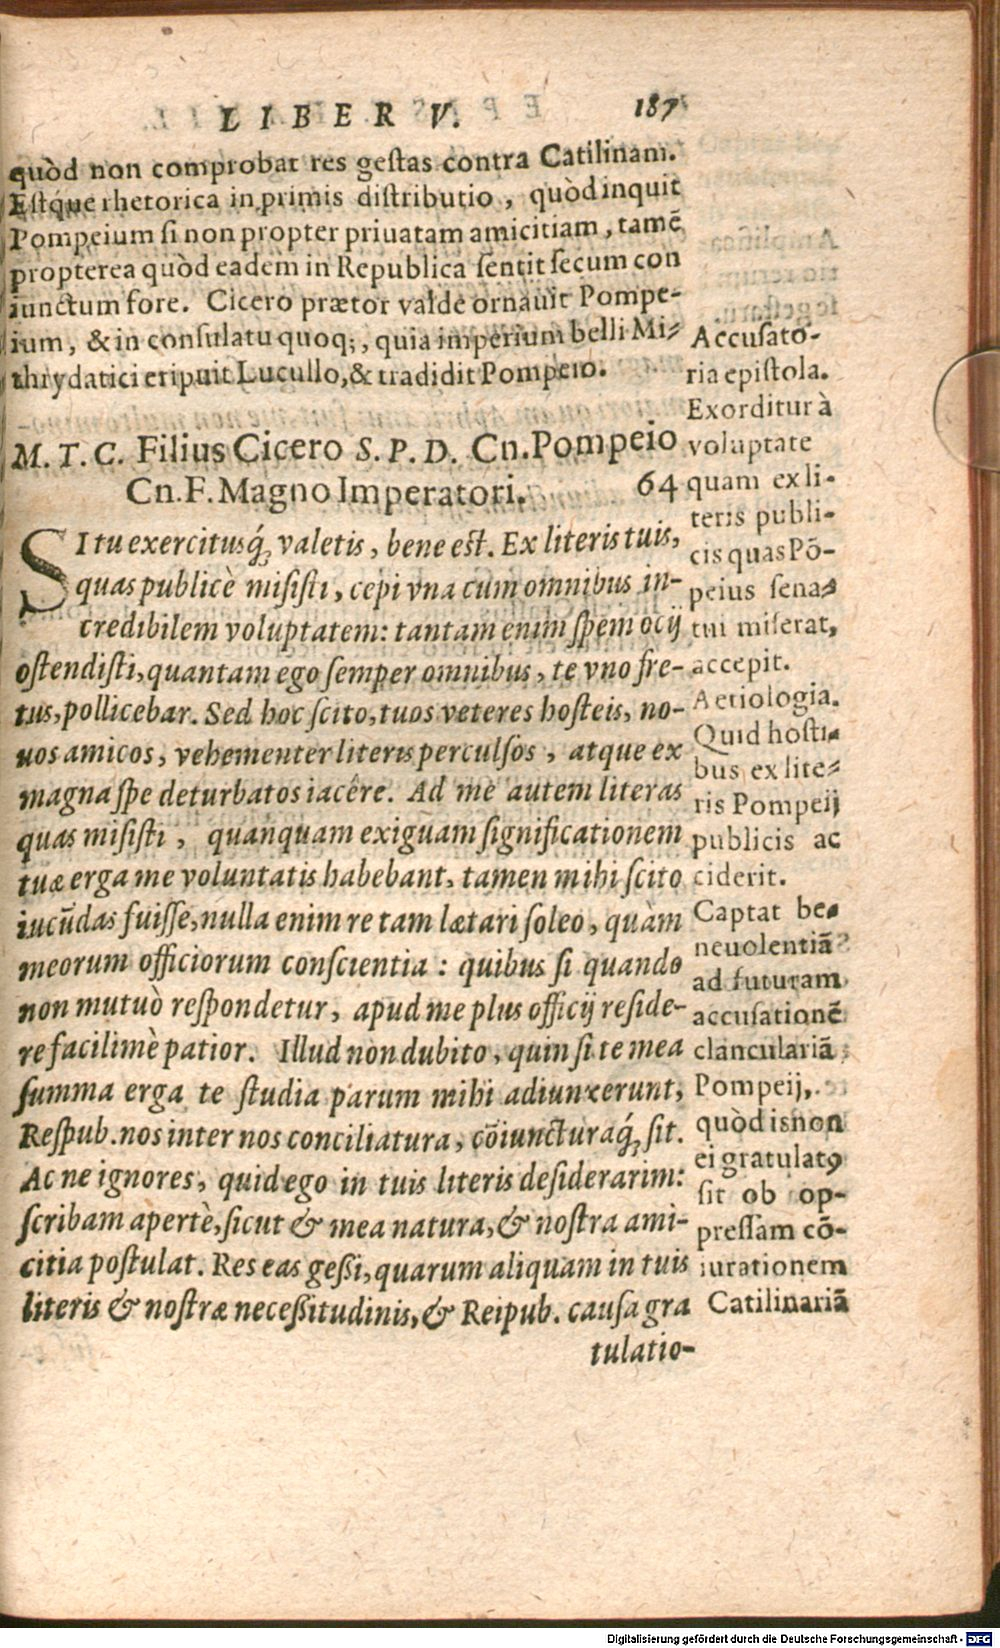 LIBER V. 187
quòd non comprobat res gestas contra Catilinam.
Estq́ue rhetorica in primis distributio, quòd inquit
Pompeium si non propter priuatam amicitiam, tamẽ
propterea quòd eadem in Republica sentit secum con
iunctum fore. Cicero prætor valde ornauit Pompe-
ium, & in consulatu quoq;, quia imperium belli Mi-
thrydatici eripuit Lucullo, & tradidit Pompeio.
M. T. C. Filius Cicero S. P. D. Cn. Pompeio
Cn. F. Magno Imperatori. 64
SI tu exercitusq́; valetis, bene est. Ex literis tuis,
quas publicè misisti, cepi vna cum omnibus in-
credibilem voluptatem: tantam enim spem ocij
ostendisti, quantam ego semper omnibus, te vno fre-
tus, pollicebar. Sed hoc scito, tuos veteres hosteis, no-
uos amicos, vehementer literis perculsos, atque ex
magna spe deturbatos iacêre. Ad me autem literas
quas misisti, quanquam exiguam significationem
tuæ erga me voluntatis habebant, tamen mihi scito
iucũdas fuisse, nulla enim re tam lætari soleo, quàm
meorum officiorum conscientia: quibus si quando
non mutuò respondetur, apud me plus officij reside-
re facilimè patior. Illud non dubito, quin si te mea
summa erga te studia parum mihi adiunxerunt,
Respub. nos inter nos conciliatura, cõiuncturaq́; sit.
Ac ne ignores, quid ego in tuis literis desiderarim:
scribam apertè, sicut & mea natura, & nostra ami-
citia postulat. Res eas gessi, quarum aliquam in tuis
literis & nostræ necessitudinis, & Reipub. causa gra
tulatio-
Accusato-
ria epistola.
Exorditur à
voluptate
quam ex li-
teris publi-
cis quas Põ-
peius sena-
tui miserat,
accepit.
Aetiologia.
Quid hosti-
bus ex lite-
ris Pompeij
publicis ac
ciderit.
Captat be-
neuolentiã
ad futuram
accusationẽ
clanculariã
Pompeij,
quòd is non
ei gratulatꝰ
sit ob op-
pressam cõ-
iurationem
Catilinariã
Digitalisierung gefördert durch die Deutsche Forschungsgemeinschaft - DFG